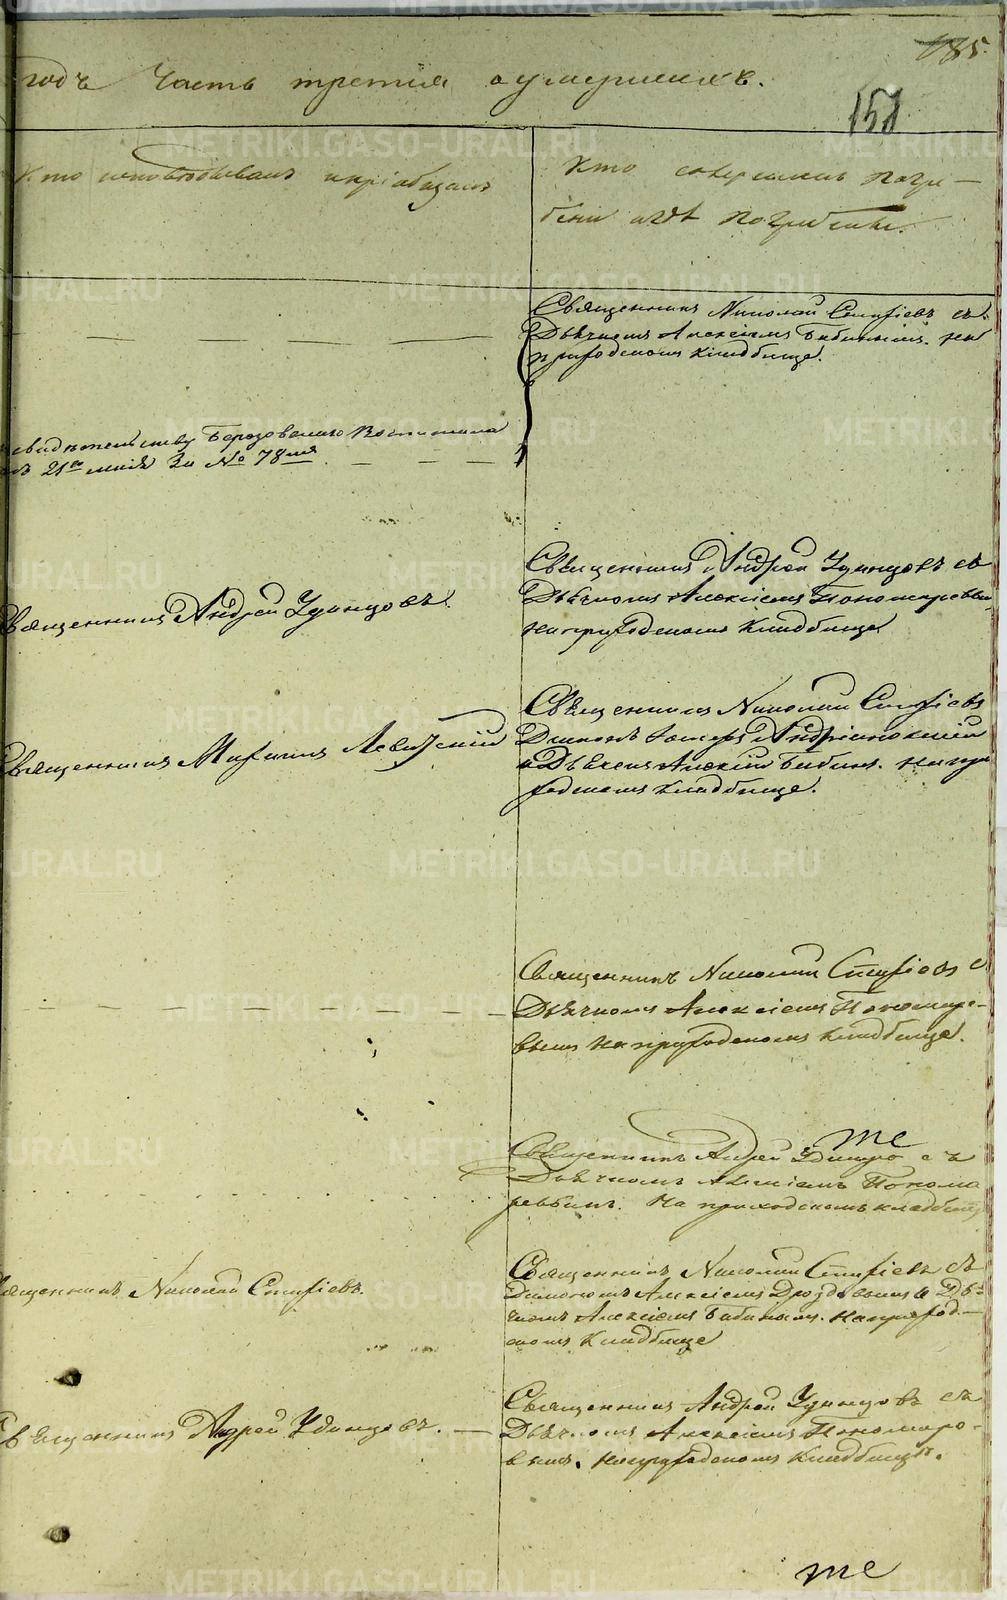 185.
годъ Часть третія оумершихъ.
151
Кто исповѣдывалъ и пріобщалъ
Кто совершалъ погре-
бенія и гдѣ погребены.
Священникъ Николай Стефіевъ съ
Дьячкомъ Алексіемъ Бабинымъ. на
приходскомъ кладбище.
свидѣтельству Березовскаго
21го маія За № 78мъ
Священникъ Андрей Удинцовъ съ
Дьячкомъ Алексіемъ Пономаревым
на приходскомъ кладбище
Священникъ Андрей Удинцовъ.
Священникъ Николай Стефіевъ
Диаконъ Андріановскій
и Дьячекъ Алексій Бабинъ. на при
ходскомъ кладбище.
Священникъ Левитскій
Священникъ Николай Стефіевъ с
Дьячкомъ Алексіемъ Пономаре-
вымъ на приходскомъ кладбище.
те
Священникъ Андрей Удинцо съ
Дьячкомъ Алексіемъ Понома
ревымъ. На приходскомъ кладбищѣ
Священникъ Николай Стефіевъ.
Священникъ Николай Стефіевъ съ
Диакономъ Алексіемъ Дроздовымъ и Дья-
чкомъ Алексіемъ Бабинымъ. на приход-
скомъ кладбище
Священникъ Андрей Удинцовъ.
Священникъ Андрей Удинцовъ съ
Дьячкомъ Алексіемъ Пономаре-
вымъ. на приходскомъ кладбищѣ.
те
METRIKI.GASO-URAL.RU